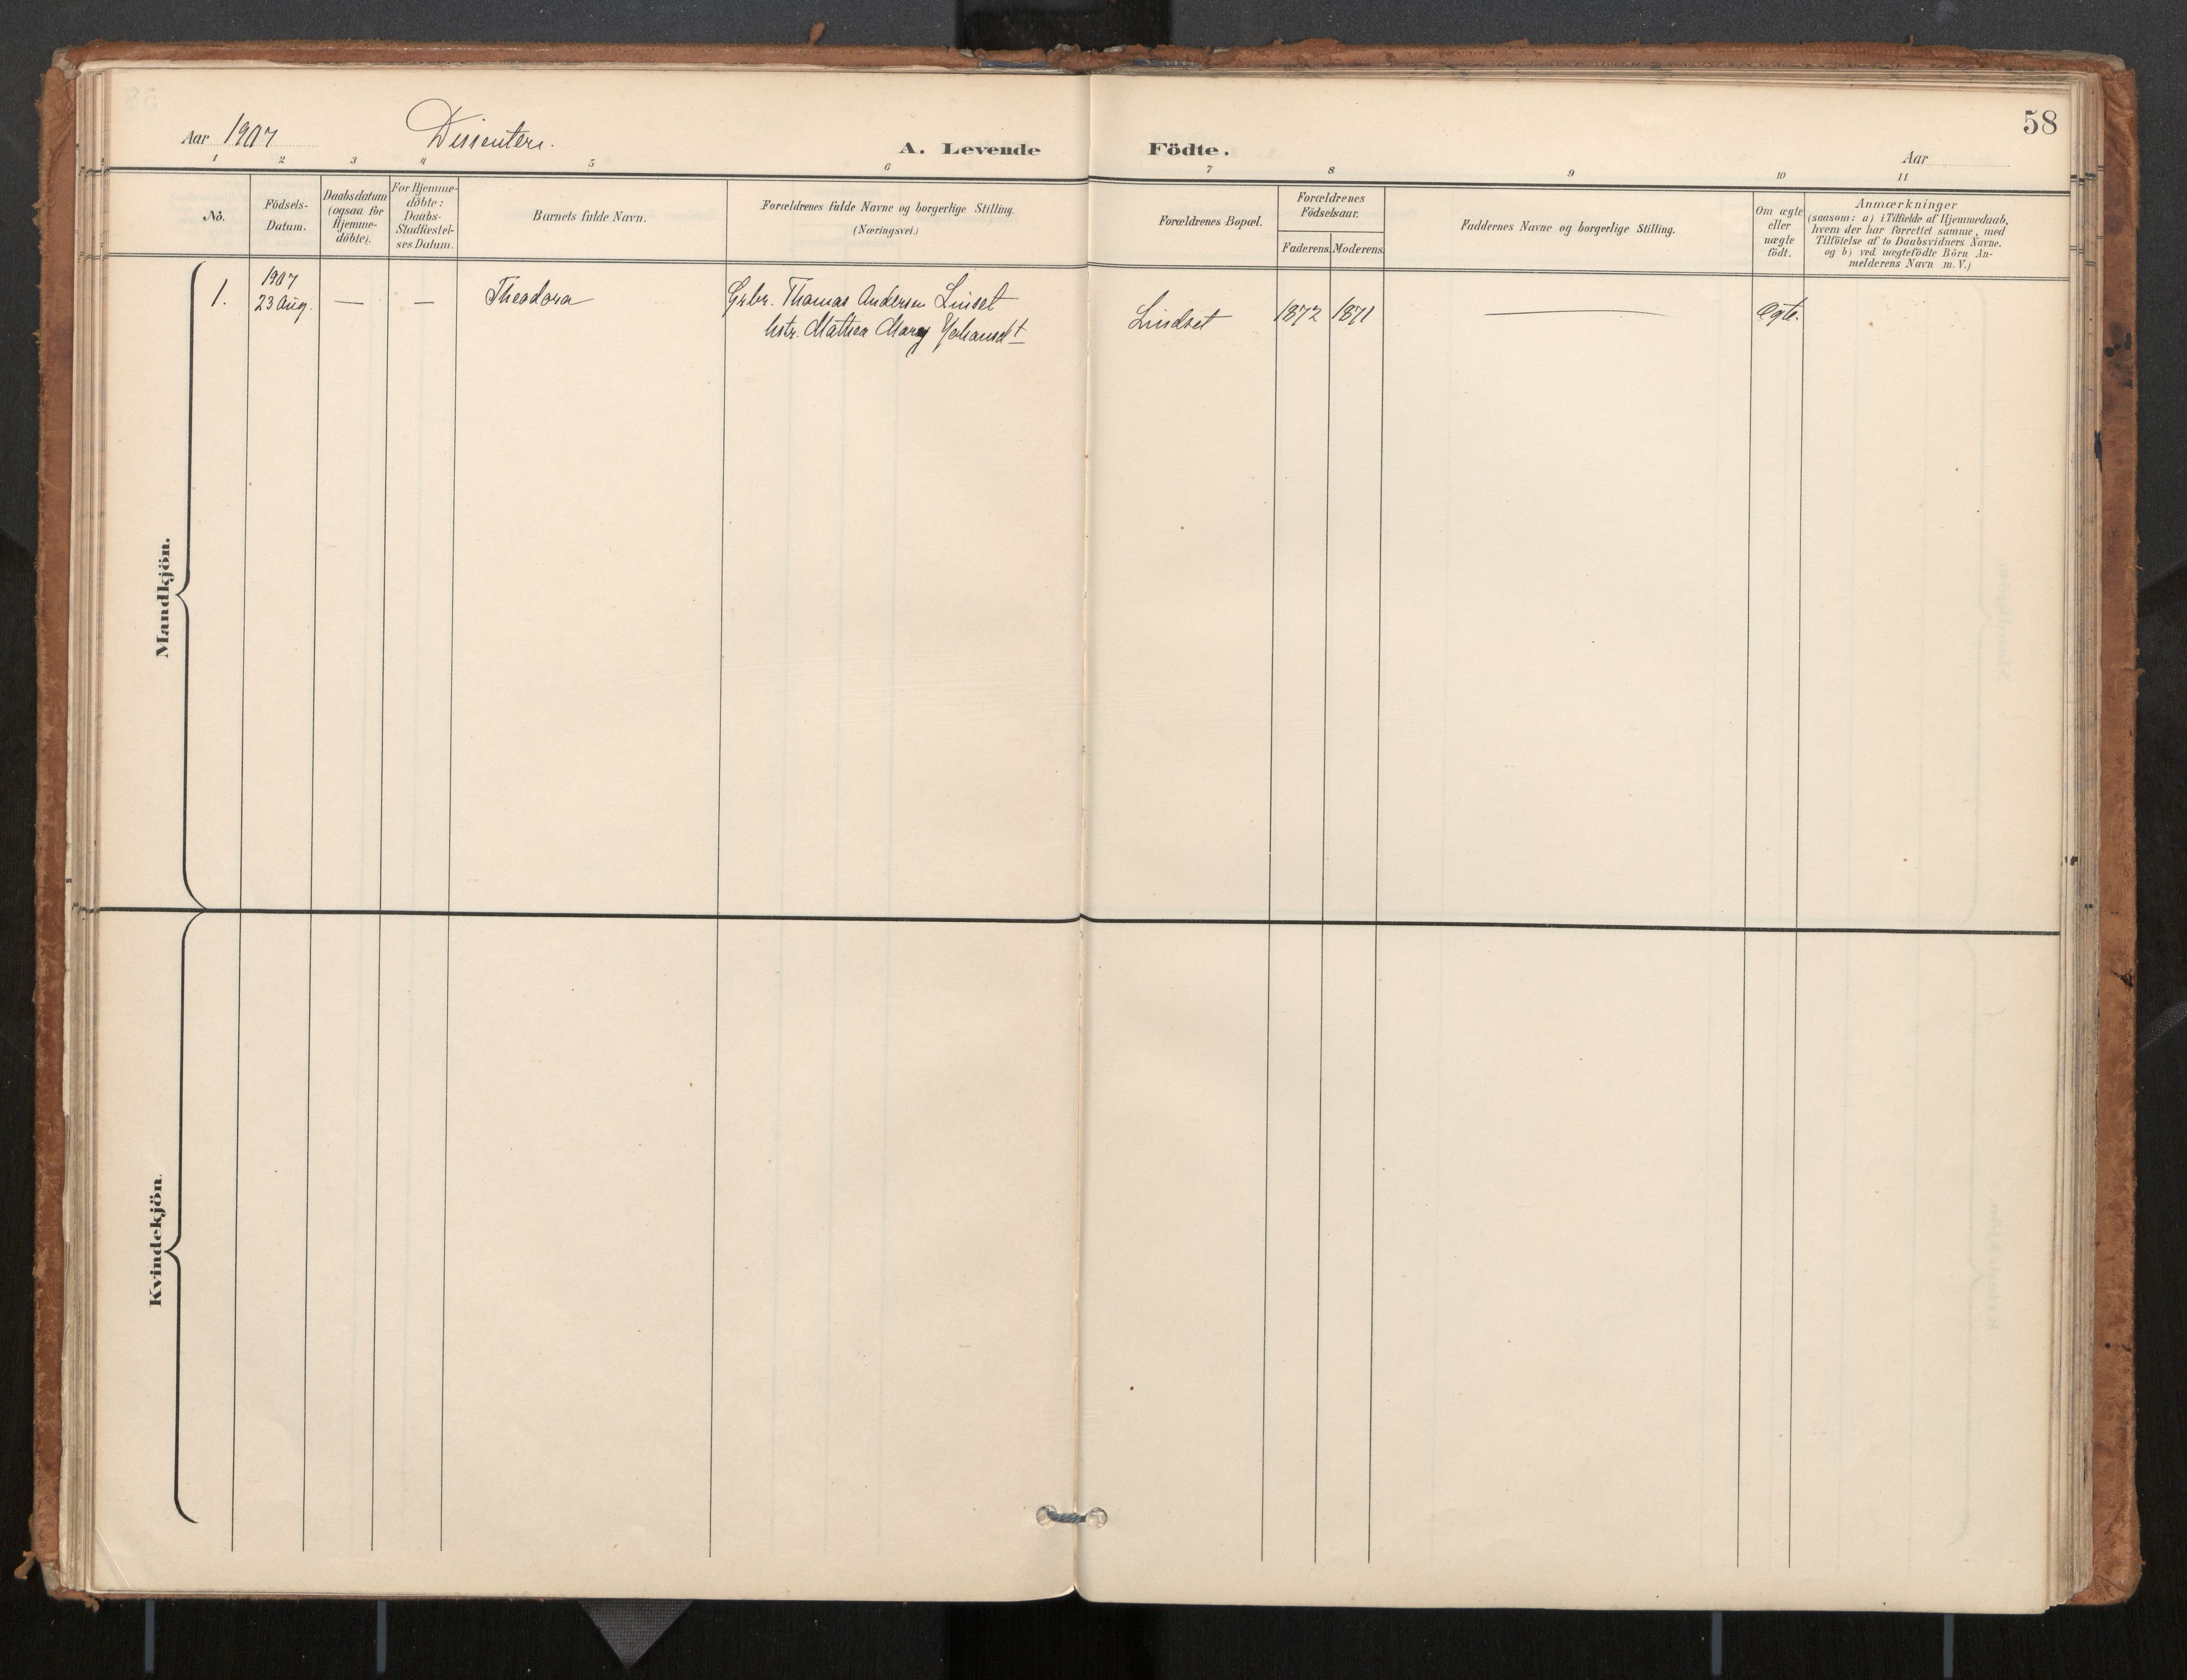 58
Aar 1907 Dissentere. A. Levende Födte. Aar
1 2 3 4 5 6 7 8 9 10 11
No.
Födsels-
Datum.
Daabsdatum
(ogsaa for
Hjemme-
döbte).
For Hjemme-
döbte:
Daabs-
Stadfestel-
ses Datum.
Barnets fulde Navn.
Forældrenes fulde Navne og borgerlige Stilling.
(Næringsvei.)
Forældrenes Bopæl.
Forældrenes
Födselsaar.
Faderens. Moderens.
Faddernes Navne og borgerlige Stilling.
Om ægte
eller
uægte
födt.
Anmærkninger
(saasom: a) i Tilfælde af Hjemmedaab,
hvem der har forrettet samme, med
Tilföielse af to Daabsvidners Navne.
og b) ved uægtefödte Börn An-
melderens Navn m.V.)
Mandkjön.
1.
1907
23 Aug.
—
—
Theodora
Grbr. Thomas Andersen Linset
hstr. Mathea Johansdt
Lindset
1872 1871
Ægte.
Kvindekjön.